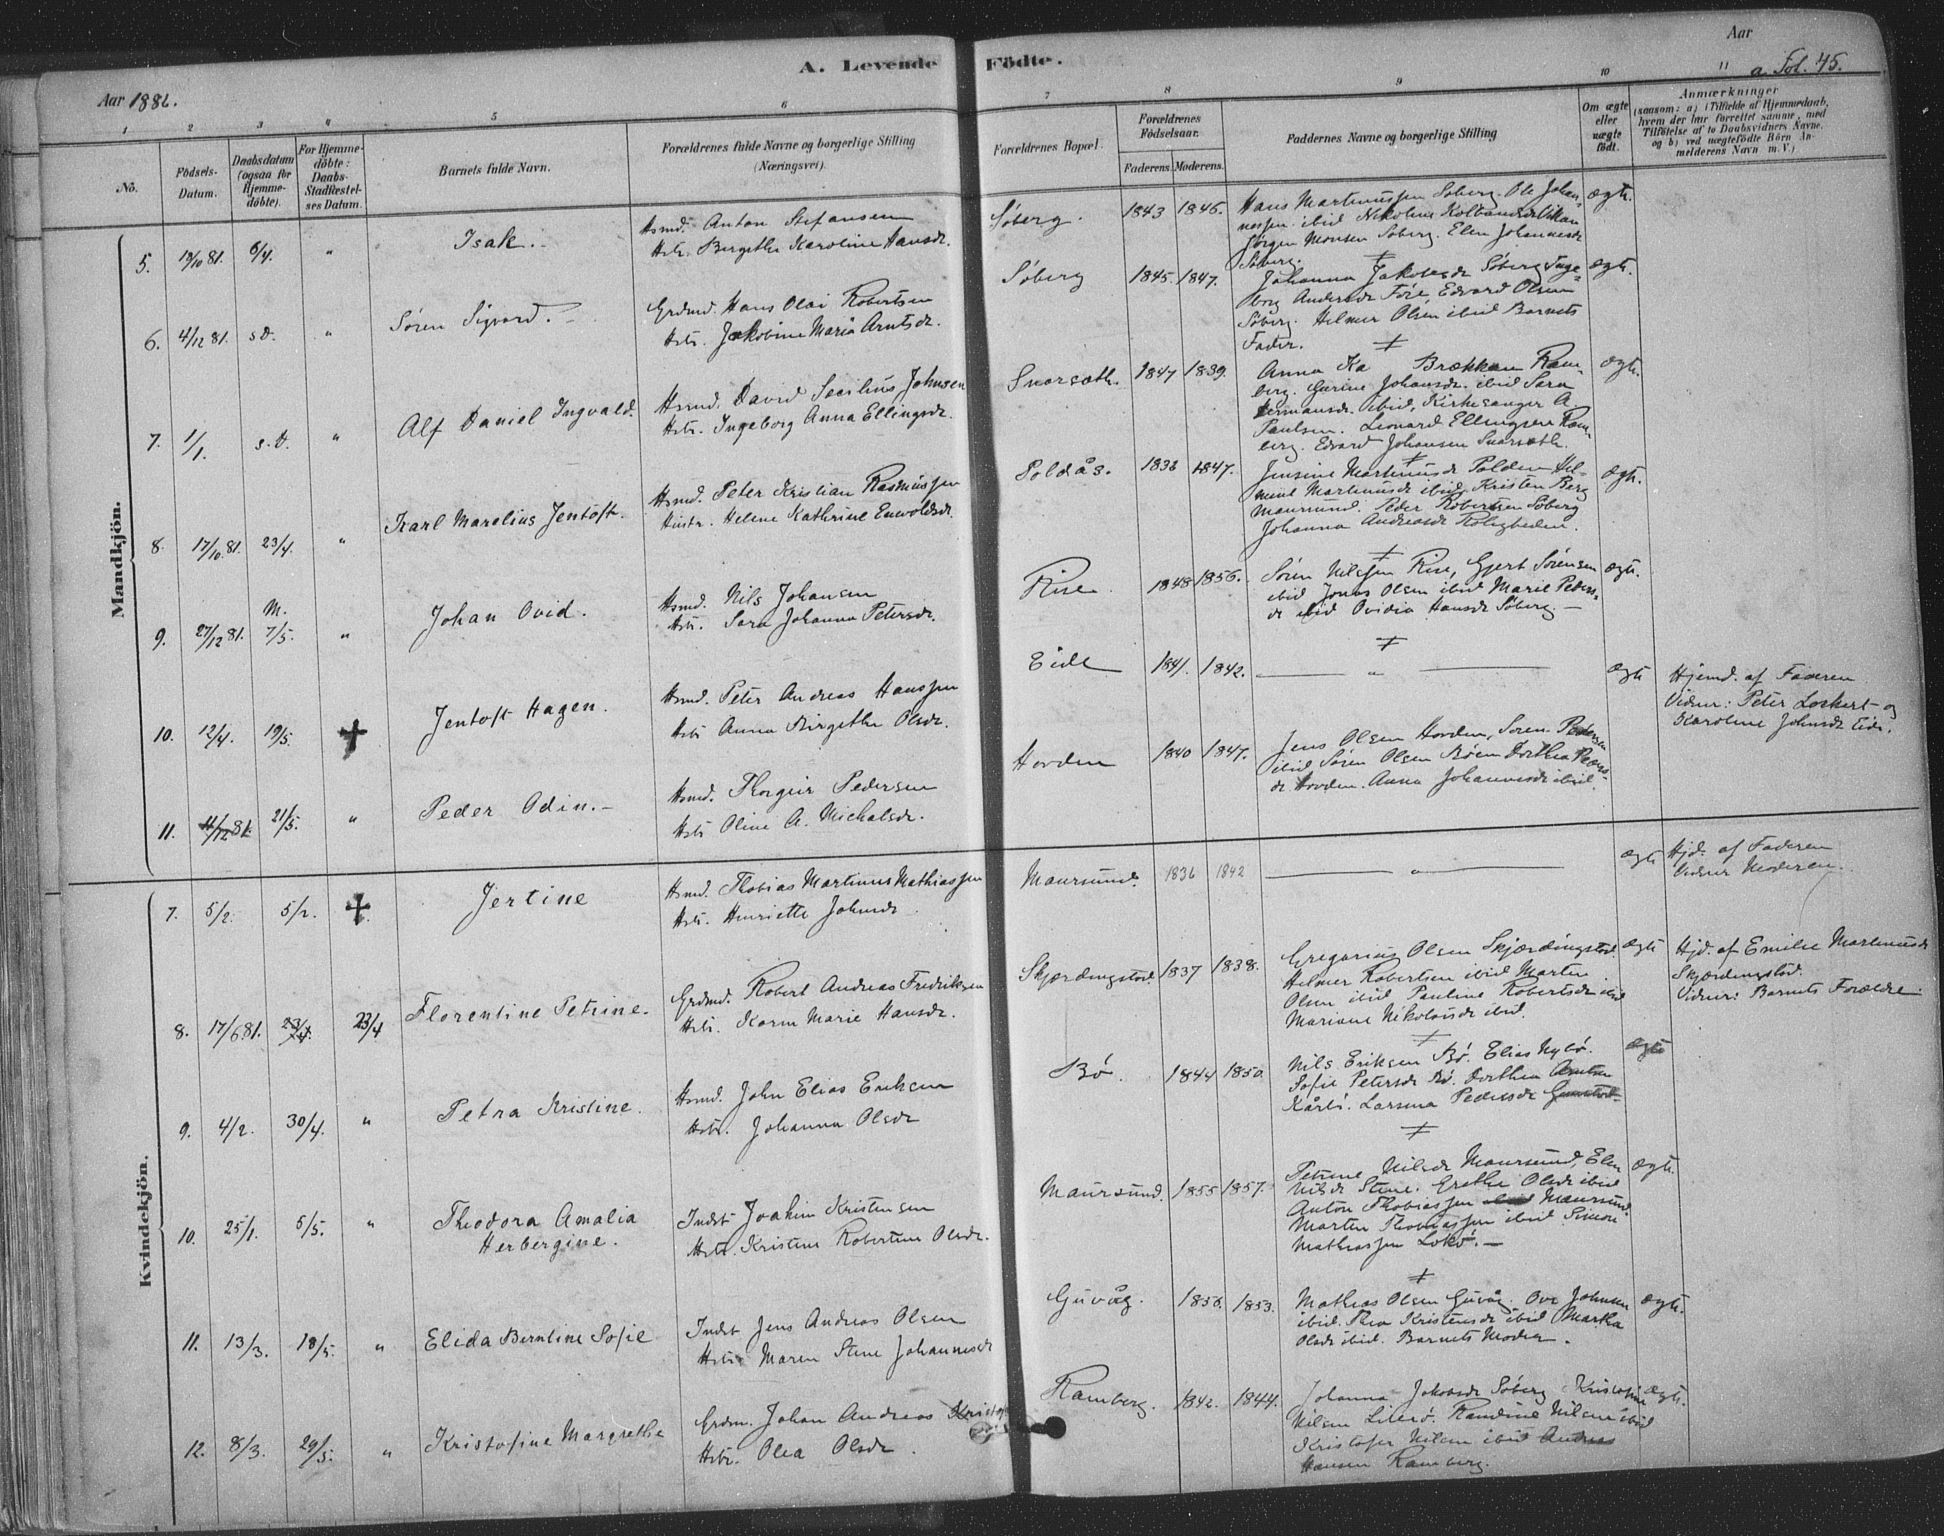 A. Levende Födte.
Aar 1882.
Aar
a. Fol. 45.
1 2 3 4 5 6 7 8 9 10 11
No.
Födsels-Datum.
Daabsdatum (ogsaa for Hjemme-döbte).
For Hjemme-döbte: Daabs-Stadfæstel-ses Datum.
Barnets fulde Navn.
Forældrenes fulde Navne og borgerlige Stilling (Næringsvei).
Forældrenes Bopæl.
Forældrenes Födselsaar.
Faderens. Moderens.
Faddernes Navne og borgerlige Stilling
Om ægte eller uægte födt.
Anmærkninger
(saasom: a) i Tilfælde af Hjemmedaab, hvem der har forrettet samme, med Tilföielse af to Daabsvidners Navne, og b) ved uægtefödte Börn Anmelderens Navn m. V.)
Mandkjön.
5. 19/10 81. 6/4. " Isak.
Hsmd. Anton Stefansen
Hstr. Birgithe Karoline Hansdr.
Söberg. 1843 1846.
Hans Martinussen Söberg. Ole Johan-
nessen ibid Nikoline
Jörgen Monsen Söberg. Elen Johannesdr
Söberg.
ægte.
6. 4/12 81. s.D. " Sören Sigvard.
Grdmd. Hans Olai Robertsen
Hstr. Jakobine Maria Arntsdr.
Söberg 1845. 1847.
Johanna Jakobsdr Söberg Inge-
borg Andersdr Före, Edvard Olsen
Söberg. Helmer Olsen ibid Barnets
Fader.
ægte.
7. 1/1. s.D. " Alf Daniel Ingvald.
Hsmd. David Secilius Johnsen
Hstr. Ingeborg Anna Ellingsdr.
Snarsæth. 1847 1839.
Anna Ka Brækkan Ram-
berg. Gurine Johansdr. ibid Sara
Hermansdr. ibid, Kirkesanger A.
Paulsen. Leonard Ellingsen Ram-
berg. Edvard Johansen Snarsæth.
ægte.
8. 17/10 81. 23/4. " Karl Marelius Jentoft.
Hsmd. Peter Kristian Rasmussen
Hustr. Helene Kathrine Enevoldsdr.
Poldås. 1836 1847.
Jensine Martinusdr Polden Hel-
mine Martinusdr ibid, Kristen Berg
Maursund. Peder Robertsen Söberg
Johanna Andreasdr Roligheden.
ægte.
9. 27/12 81. M. 7/5. " Johan Ovid.
Hsmd. Nils Johansen
Hstr. Sara Johanna Petersdr.
Rise. 1848 1856.
Sören Nilssen Rise, Gjert Sörensen
ibid Jonas Olsen ibid Marie Peders-
dr ibid Ovidia Hansdr Söberg.
ægte.
10. 12/4. 19/5. ✝ Jentoft Hagen.
Hsmd. Peter Andreas Hanssen
Hstr Anna Birgithe Olsdr.
Eide 1841. 1842.
"
ægte
Hjemd. af Faderen.
Vidner: Peter Lockert og
Karoline Johnsdr Eide.
11. 11/12 81. 21/5. " Peder Odin.
Hsmd. Thorgeir Pedersen
Hstr Oline A. Michalsdr.
Hovden 1840 1847.
Jens Olsen Hovden, Sören Pedersen
ibid Sören Olsen Röen Dorthea Peders-
dr Hovden. Anna Johannesdr ibid.
Kvindekjön.
7. 5/2. 5/2. ✝ Jertine
Hsmd. Thobias Martinus Mathiassen
Hstr. Henriette Johnsdr.
Maursund. 1836 1842
"
ægte
Hjd. af Faderen
Vidner Moderen.
8. 17/6 81. 23/4. 23/4 Florentine Petrine.
Grdmd. Robert Andreas Fredriksen
Hstr. Karen Marie Hansdr.
Skjærdingstod. 1837 1838.
Gregorius Olsen Skjærdingstod.
Helmer Robertsen ibid Marten
Olsen ibid Pauline Robertsdr ibid
Mariane Nikolaisdr ibid.
ægte
Hjd. af Emilie Martinusdr
Skjærdingstod.
Vidner: Barnets Forældre.
9. 4/2. 30/4. " Petra Kristine.
Hsmd. John Elias Eriksen
Hstr. Johanna Olsdr
Bö. 1844 1850
Nils Eriksen Bö. Elias Nybö.
Sofie Petersdr Bö. Dorthea Arntsen
Kårbö. Larsina Pedersdr
ægte
10. 25/1. 5/5. " Theodora Amalia
Herbergine.
Indst Joakim Kristensen
Hstr. Kristine Robertine Olsdr.
Maursund. 1855 1857.
Petrine Nilsdr Maursund, Elen
Nilsdr Stene. Grethe Olsdr ibid
Anton Thobiassen Maursund.
Marten Thobiassen ibid Simon
Mathiassen Lokö.
ægte.
11. 13/3. 18/5. " Elida Berntine Sofie
Indst Jens Andreas Olsen
Hstr Maren Stene Johannesdr
Guvåg. 1856. 1853.
Mathias Olsen Guvåg. Ove Johnsen
ibid. Thea Kristensdr ibid Martha
Olsdr ibid. Barnets Moder.
ægte.
12. 8/3. 29/5. " Kristofine Margrethe
Grdm. Johan Andreas
Hstr. Olea Olsdr.
Ramberg. 1842. 1844.
Johanna Jakobsdr Söberg Kristofine
Nilsen Randine Nilsen ibid
Kristofer Nilsen ibid Andreas
Hansen Ramberg.
ægte.